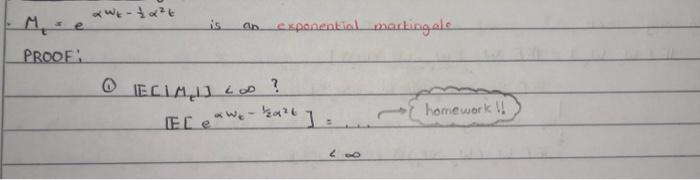 . M_t = e^{αW_t - ½α²t} is an exponential martingale
PROOF:
① 𝔼[|M_t|] < ∞ ?
𝔼[e^{αW_t - ½α²t}] = .... → homework!!
< ∞